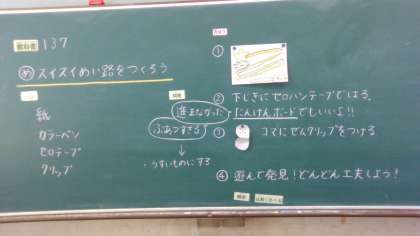 教科書 137
め スイスイめい路をつくろう
紙
カラーペン
セロテープ
クリップ
進まなかった
ぶあつすぎる
↓
・うすいものにする
①
② 下じきにセロハンテープではる。
たんけんボードでもいいよ!!
③ コマにゼムクリップをつける
④ 遊んで発見!どんどん工夫しよう!